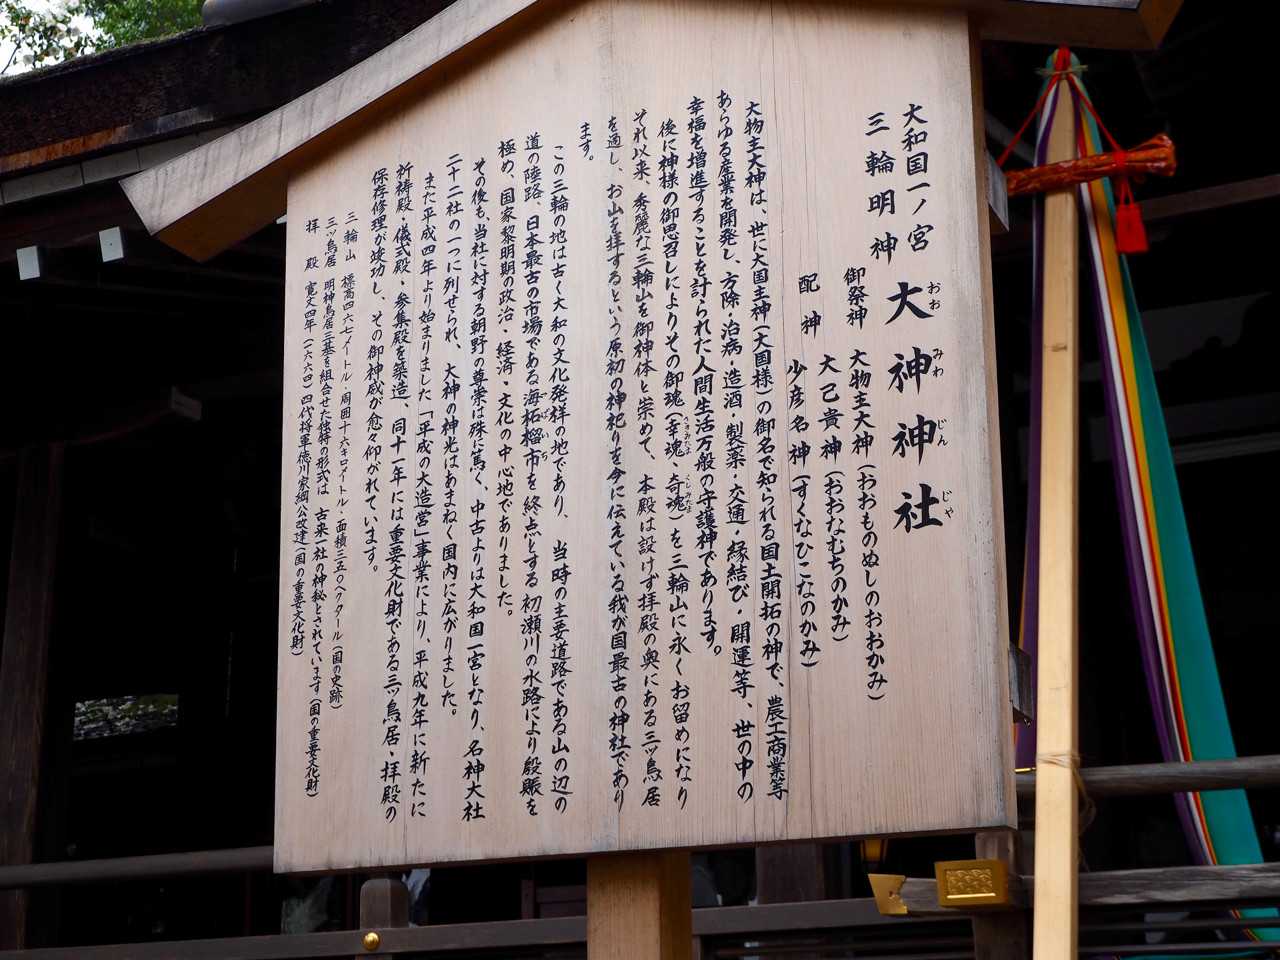 大和国一ノ宮
三輪明神
大神神社
おお みわ じん じゃ
御祭神 大物主大神(おおものぬしのおおかみ)
配神 大己貴神(おおなむちのかみ)
少彦名神(すくなひこなのかみ)
大物主大神は、世に大国主神(大国様)の御名で知られる国土開拓の神で、農工商業等
あらゆる産業を開発し、方除・治病・造酒・製薬・交通・縁結び・開運等、世の中の
幸福を増進することを計られた人間生活万般の守護神であります。
後に神様の御思召しによりその御魂(幸魂、奇魂)を三輪山に永くお留めになり
さきみたま くしみたま
それ以来、秀麗な三輪山を御神体と崇めて、本殿は設けず拝殿の奥にある三ッ鳥居
を通し、お山を拝するという原初の神祀りを今に伝えている我が国最古の神社であり
ます。
この三輪の地は古く大和の文化発祥の地であり、当時の主要道路である山の辺の
道の陸路、日本最古の市場である海柘榴市を終点とする初瀬川の水路により殷賑を
つばいち
極め、国家黎明期の政治・経済・文化の中心地でありました。
その後も当社に対する朝野の尊崇は殊に篤く、中古よりは大和国一宮となり、名神大社
二十二社の一つに列せられ、大神の神光はあまねく国内に広がりました。
また平成四年より始まりました「平成の大造営」事業により、平成九年に新たに
祈祷殿・儀式殿・参集殿を築造、同十一年には重要文化財である三ッ鳥居・拝殿の
保存修理が竣功し、その御神威が愈々仰がれています。
三輪山 標高四六七メートル・周囲十六キロメートル・面積三五〇ヘクタール(国の史跡)
三ッ鳥居 明神鳥居三基を組合せた独特の形式は、古来一社の神秘とされています(国の重要文化財)
拝殿 寛文四年(一六六四)四代将軍徳川家綱公改達(国の重要文化財)